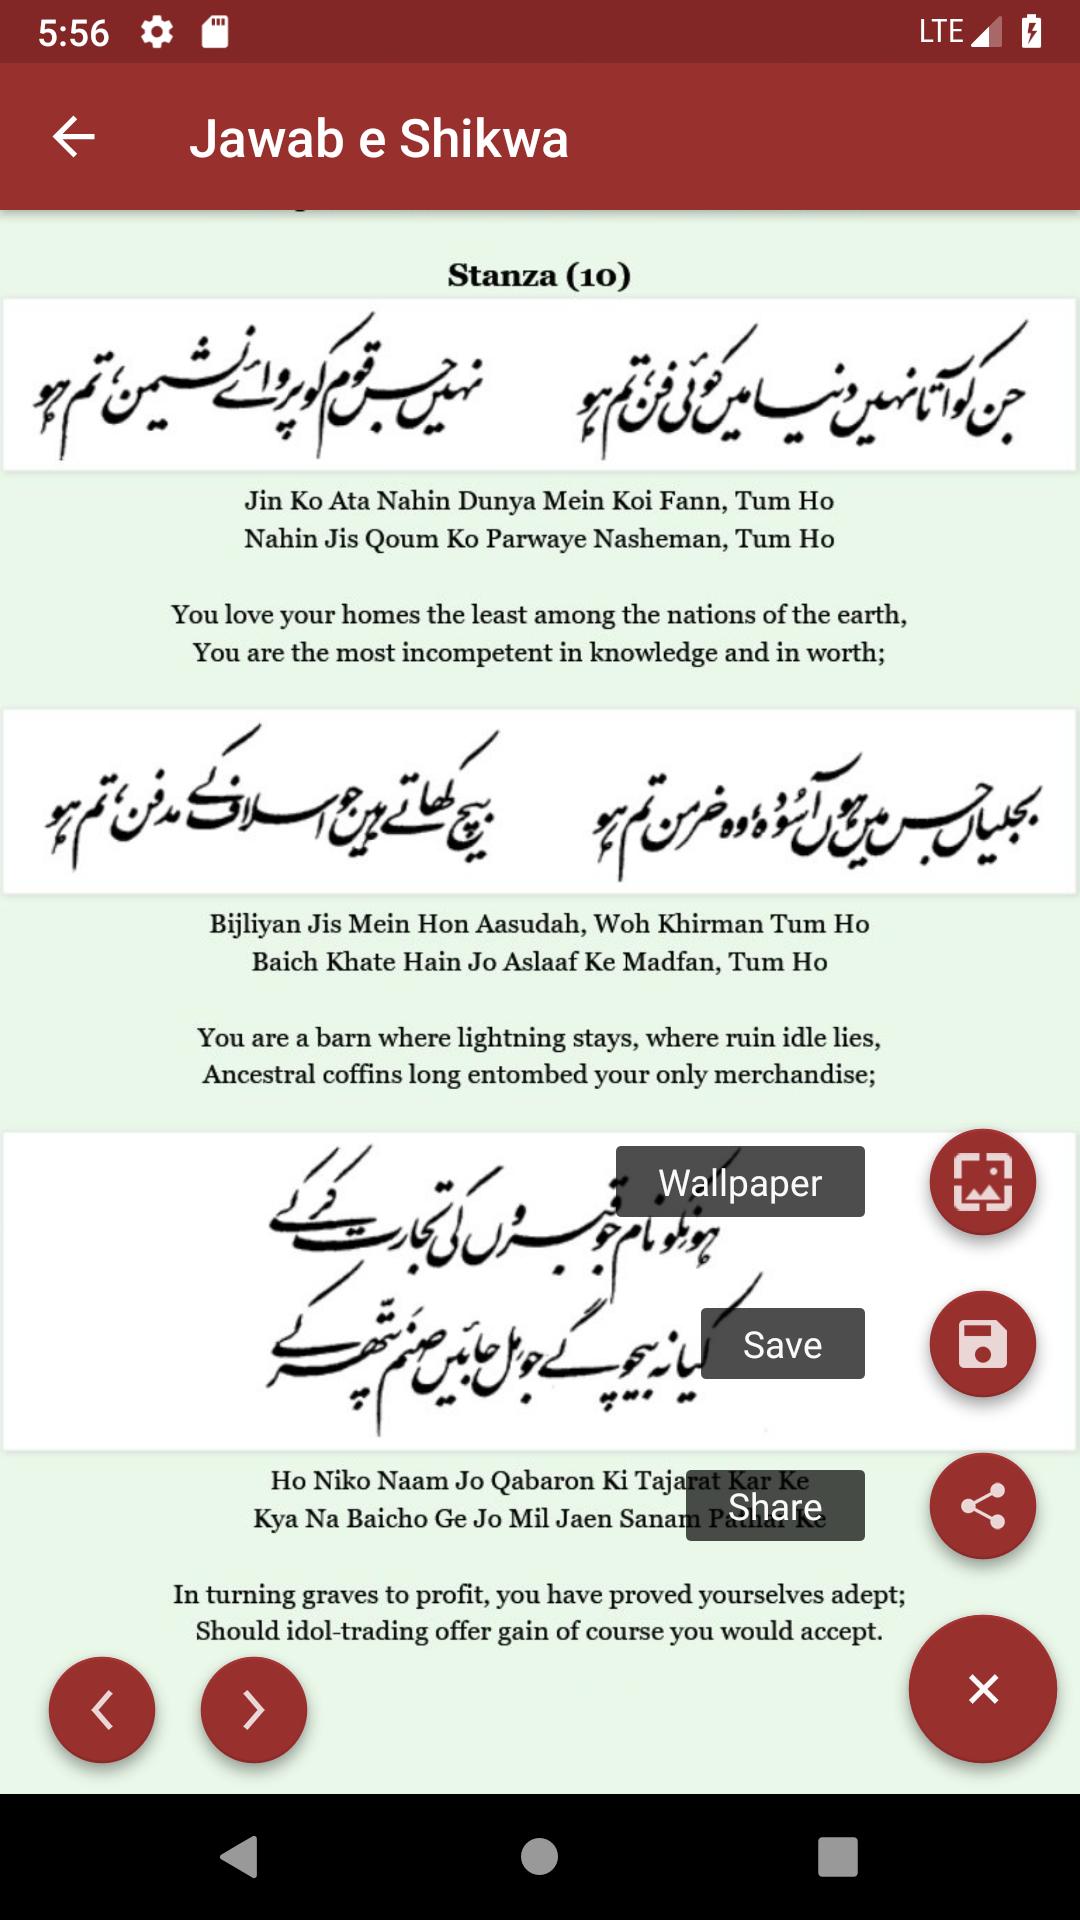 5:56
LTE
Jawab e Shikwa
Stanza (10)
جن کو آتا نہیں دنیا میں کوئی فن، تم ہو
نہیں جس قوم کو پروائے نشیمن، تم ہو
Jin Ko Ata Nahin Dunya Mein Koi Fann, Tum Ho
Nahin Jis Qoum Ko Parwaye Nasheman, Tum Ho
You love your homes the least among the nations of the earth,
You are the most incompetent in knowledge and in worth;
بجلیاں جس میں ہوں آسُودہ، وہ خرمن تم ہو
بیچ کھاتے ہیں جو اسلاف کے مدفن، تم ہو
Bijliyan Jis Mein Hon Aasudah, Woh Khirman Tum Ho
Baich Khate Hain Jo Aslaaf Ke Madfan, Tum Ho
You are a barn where lightning stays, where ruin idle lies,
Ancestral coffins long entombed your only merchandise;
ہو نِکو نام جو قبروں کی تجارت کر کے
Wallpaper
کیا نہ بیچو گے جو مِل جائیں صنَم پتھّر کے
Save
Ho Niko Naam Jo Qabaron Ki Tajarat Kar Ke
Share
Kya Na Baicho Ge Jo Mil Jaen Sanam Pathar Ke
In turning graves to profit, you have proved yourselves adept;
Should idol-trading offer gain of course you would accept.